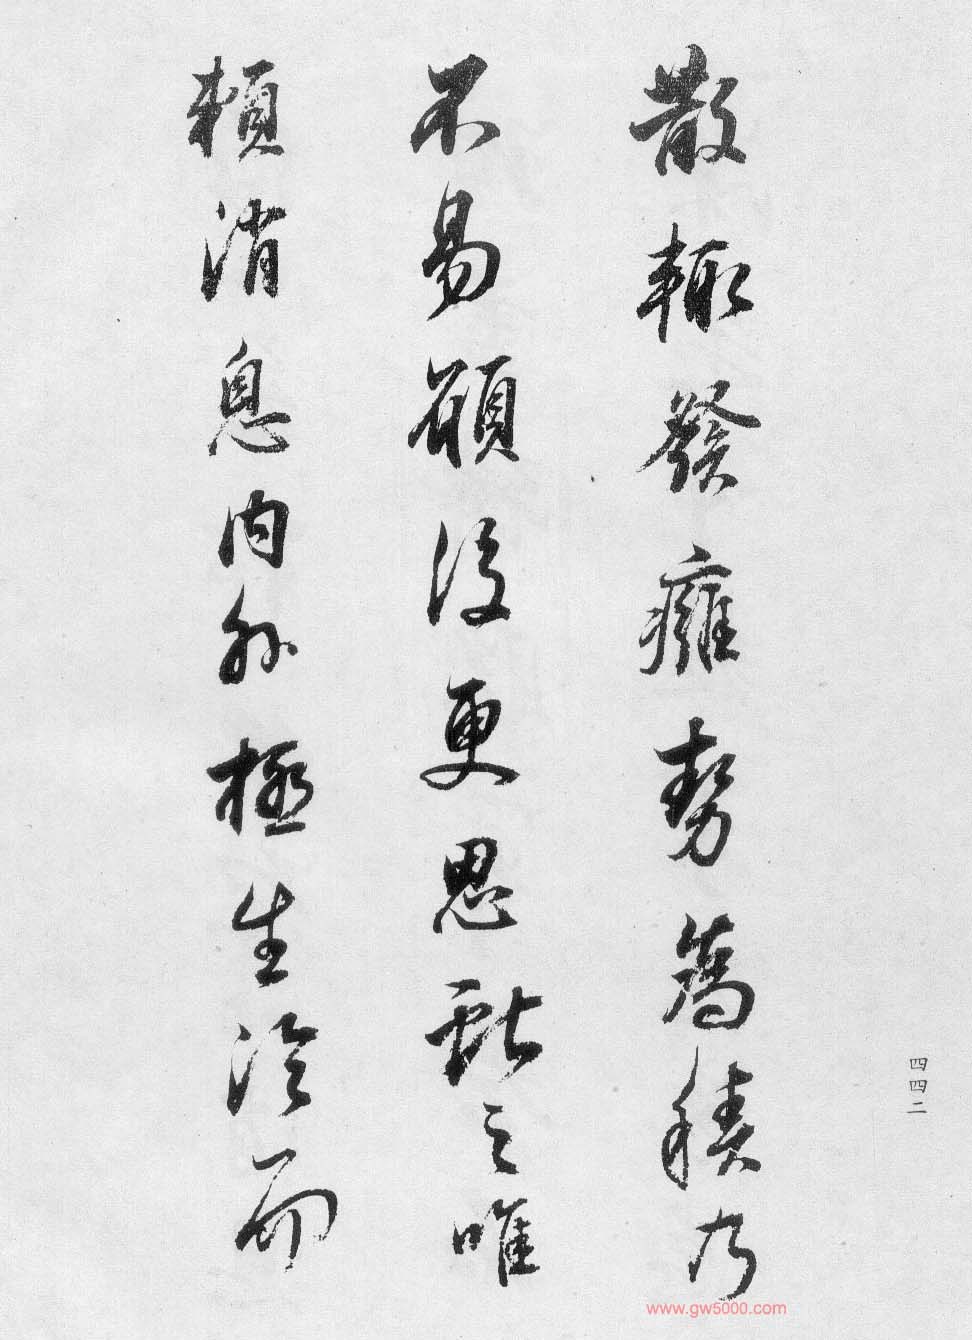 散輒發癰勢為積乃
不易願復更思之唯
賴消息内外極生冷而
四四二
www.gw5000.com